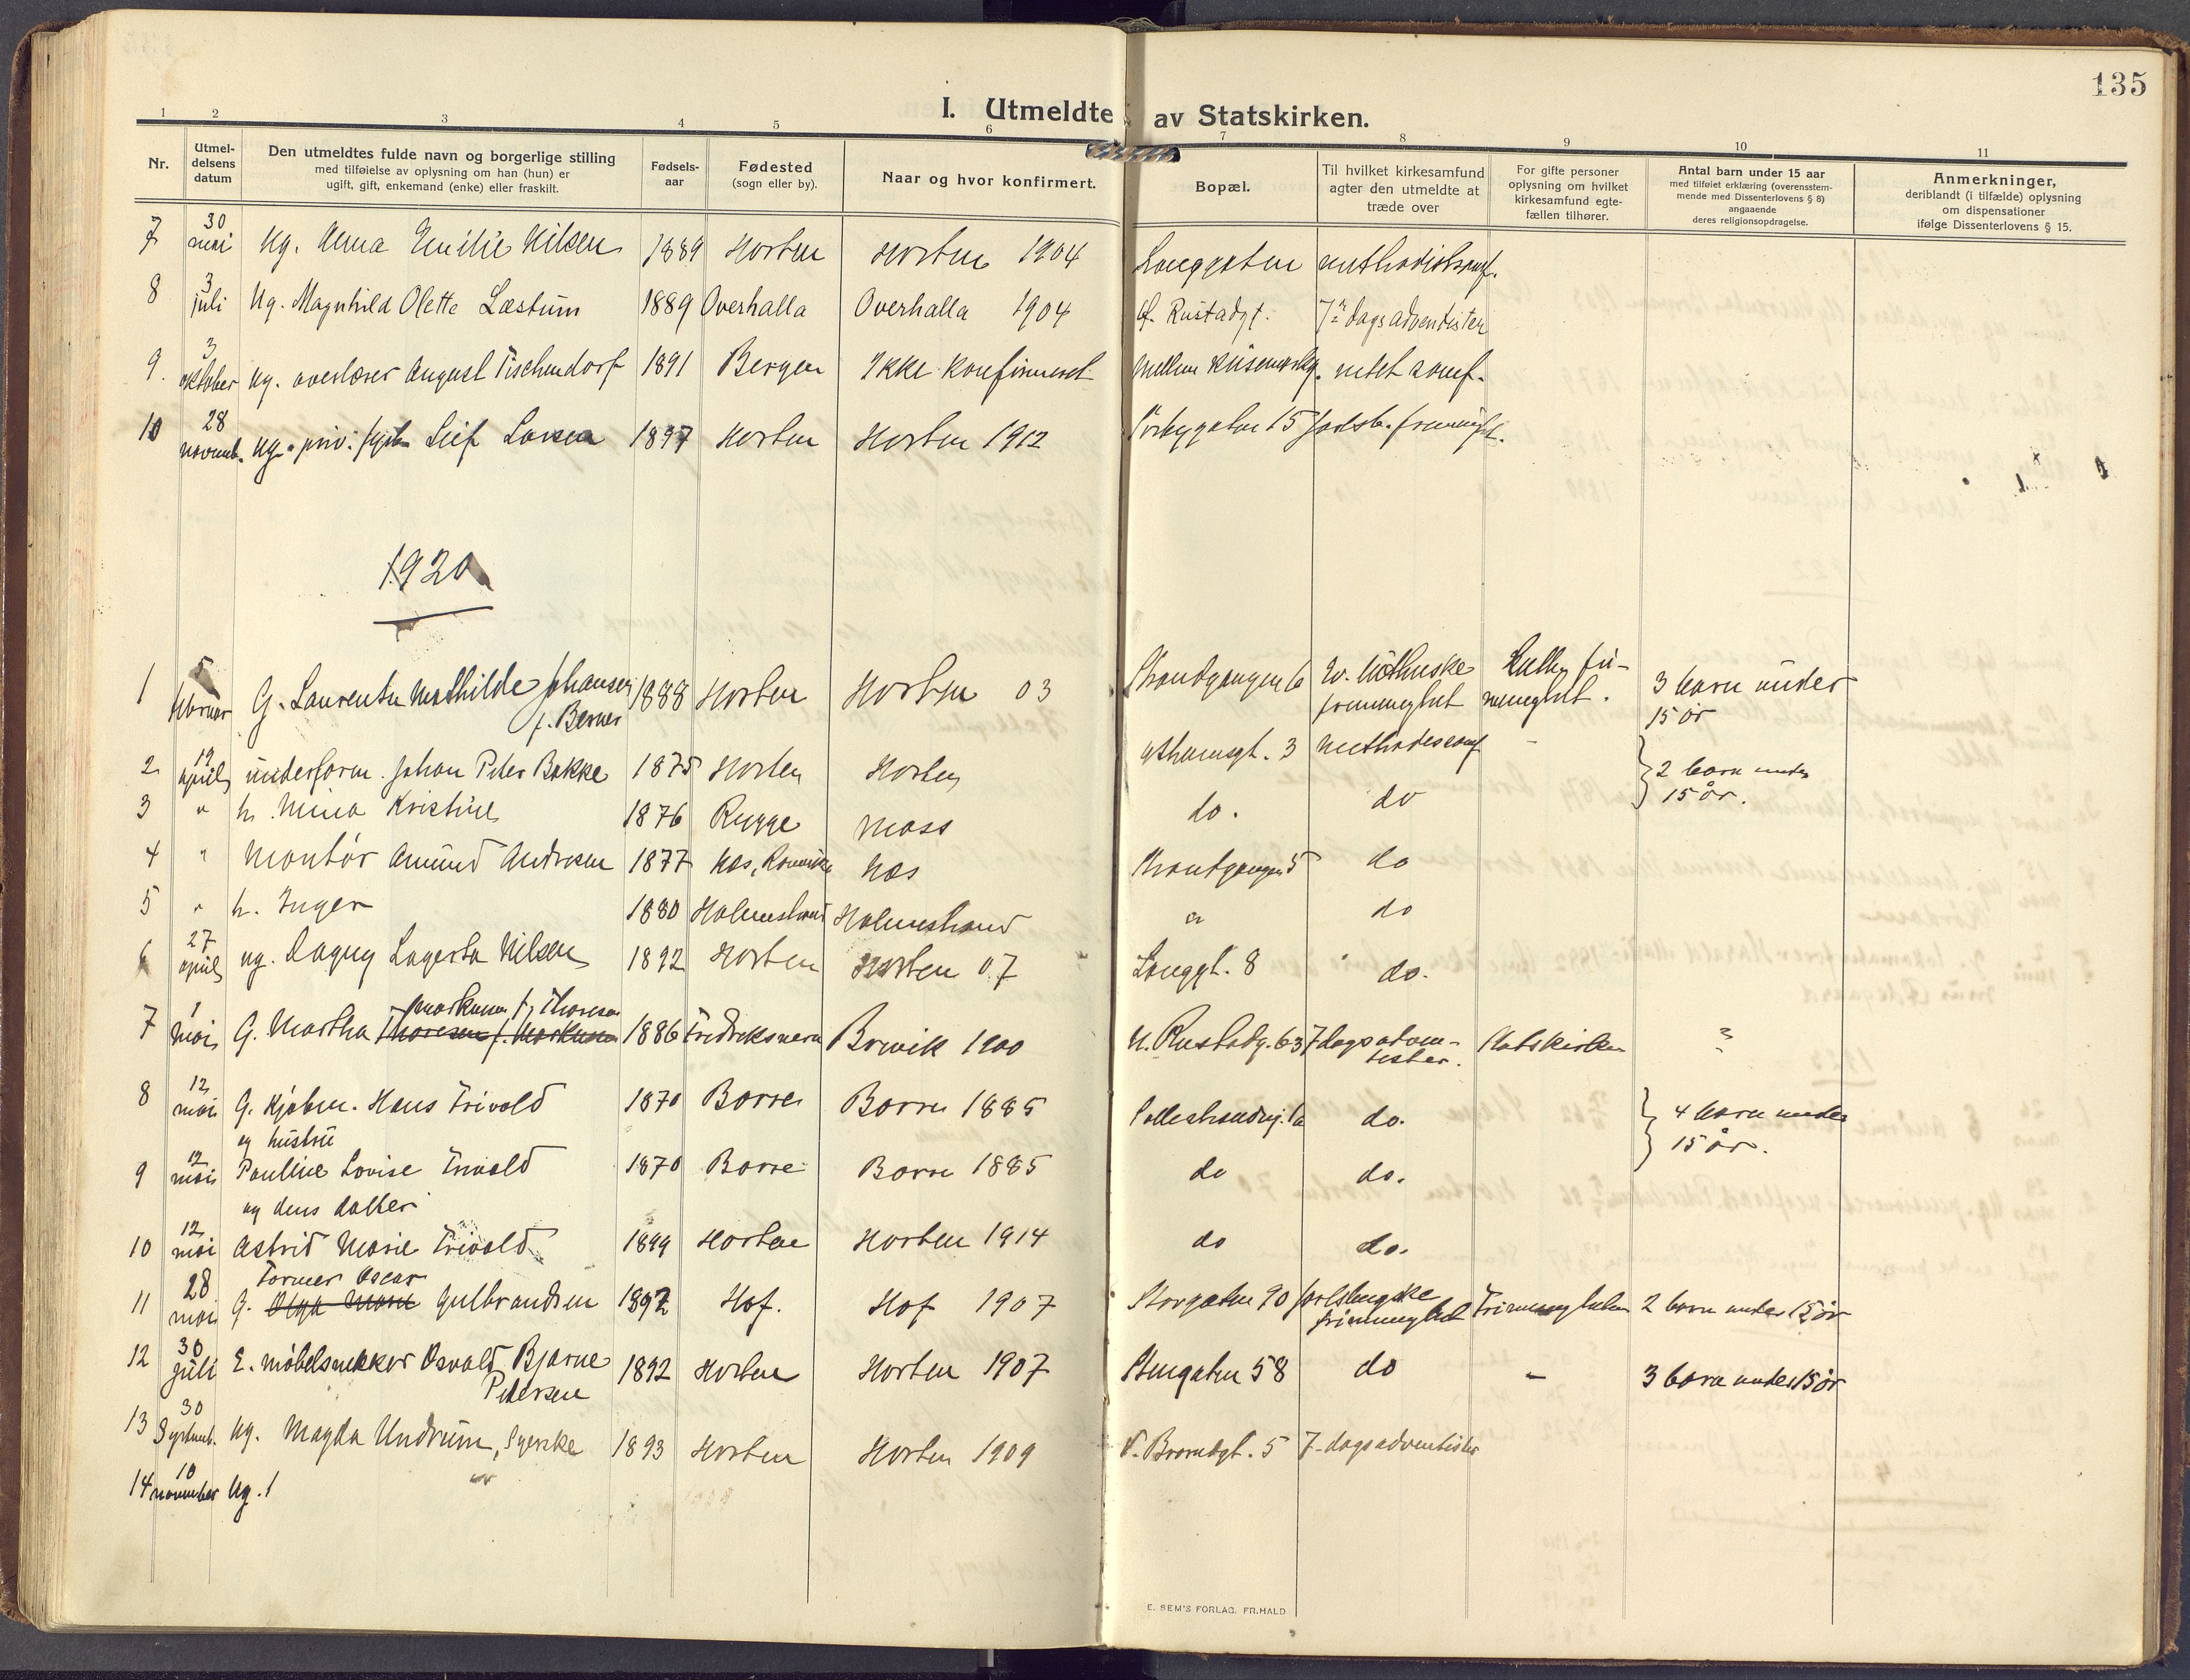 135
I. Utmeldte av Statskirken.
1 2 3 4 5 6 7 8 9 10 11
Nr.
Utmel-
delsens
datum
Den utmeldtes fulde navn og borgerlige stilling
med tilføielse av oplysning om han (hun) er
ugift, gift, enkemand (enke) eller fraskilt.
Fødsels-
aar
Fødested
(sogn eller by).
Naar og hvor konfirmert.
Bopæl.
Til hvilket kirkesamfund
agter den utmeldte at
træde over
For gifte personer
oplysning om hvilket
kirkesamfund egte-
fællen tilhører.
Antal barn under 15 aar
med tilføiet erklæring (overensstem-
mende med Dissenterlovens § 8)
angaaende
deres religionsopdragelse.
Anmerkninger,
deriblandt (i tilfælde) oplysning
om dispensationer
ifølge Dissenterlovens § 15.
7 30 mai Ug. Anna Emilie Nilsen 1889 Horten Horten 1904 Langgaten methodistsamf.
8 3 juli Ug. Magnhild Olette Læstum 1889 Overhalla Overhalla 1904 Rustadgt. 7de dags adventister
9. 3 oktober ug. overlærer August Tischendorf 1891 Bergen Ikke konfirmeret Mellem intet samf.
10 28 novemb. ug. priv. Leif Larsen 1897 Horten Horten 1912 15
1920
1 5 februar G. Laurentse Mathilde Johansen 1888 Horten Horten 03 Strandgangen 6
f. Berner
frimenighet menighet. 3 barn under
15 år
2 19 april underform. Johan Peter Bakke 1875 Horten Horten 3 methodistsamf -
2 barn under
15 år.
3 " h. Mina Kristine 1876 Rygge Moss do. do
4 " Montør Amund Andresen 1877 Nes, Romerike Nes Strandgangen 5 do
5 " h. Inger 1880 Holmestrand Holmestrand " do
6 27 april ug. Dagny Lagerta Nilsen 1892 Horten Horten 07 Langgt. 8 do.
Markussen f. Thoresen
7 1 mai G. Martha Thoresen f. Markussen 1886 Fredriksvern Brevik 1900 N. Rustadg. 63 7 dags adven- Statskirken "
tister.
8 12 mai G. Kjøbm. Hans Trivold 1870 Borre Borre 1885 do. 4 barn under
og hustru
15 år.
9 12 mai Pauline Lovise Trivold 1870 Borre Borre 1885 do do.
og deres datter
10 12 mai Astrid Marie Trivold 1899 Horten Horten 1914 do do.
Tormer Oscar
11 28 mai G. Olga Marie Gulbrandsen 1892 Hof. Hof 1907 Storgaten 90 jarlsbergske Frimenigheten 2 barn under 15 år
frimenighet
12 30 juli E. møbelsnekker Osvald Bjarne 1892 Horten Horten 1907 58 do - 3 barn under 15 år
Petersen
13 30 Septemb. Ug. Magda Undrum, syerske 1893 Horten Horten 1909 5 7-dags adventister
14 10 november Ug.
E. SEM'S FORLAG. FR.HALD